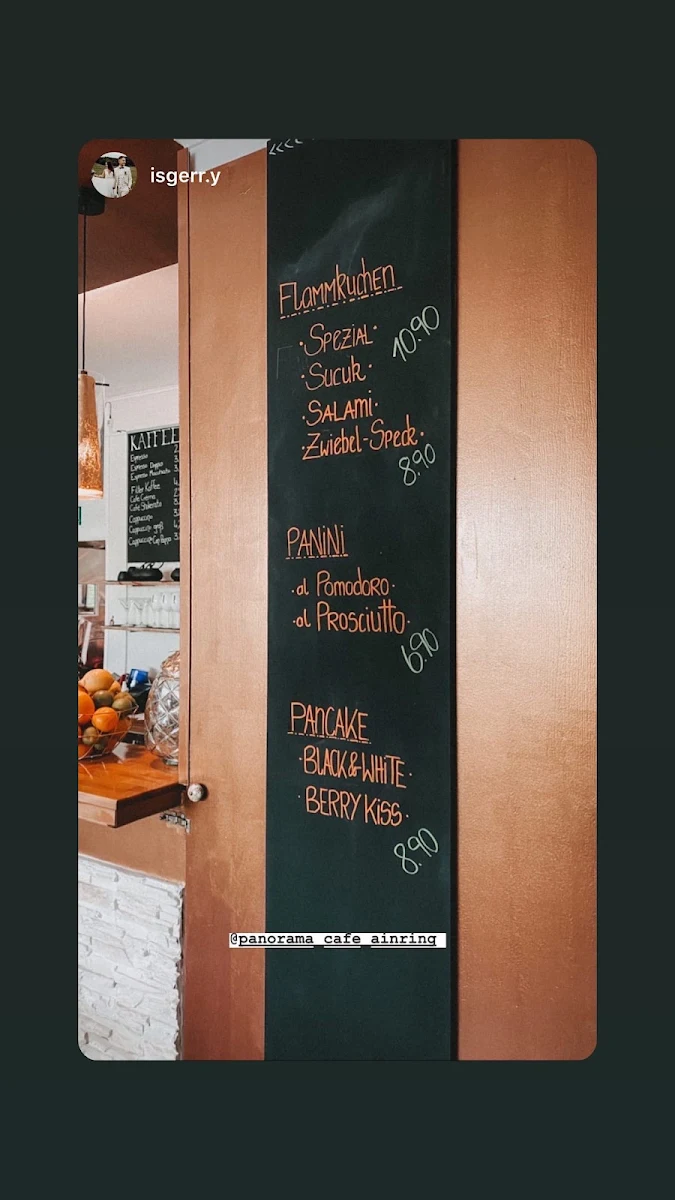 isgerr.y
<<<<
Flammkuchen
·Spezial· 10.90
·Sucuk·
·SALAMi·
·Zwiebel-Speck·
8.90
PANiNi
·al Pomodoro·
·al Prosciutto·
6.90
PANCAKE
·BLACK&WHiTE·
·BERRY KiSS·
8.90
KAFFEE
Espresso
Espresso Doppio
Espresso Macchiato
Filter Kaffee
Cafe Crema
Cappuccino
Cappuccino groß
@panorama_cafe_ainring